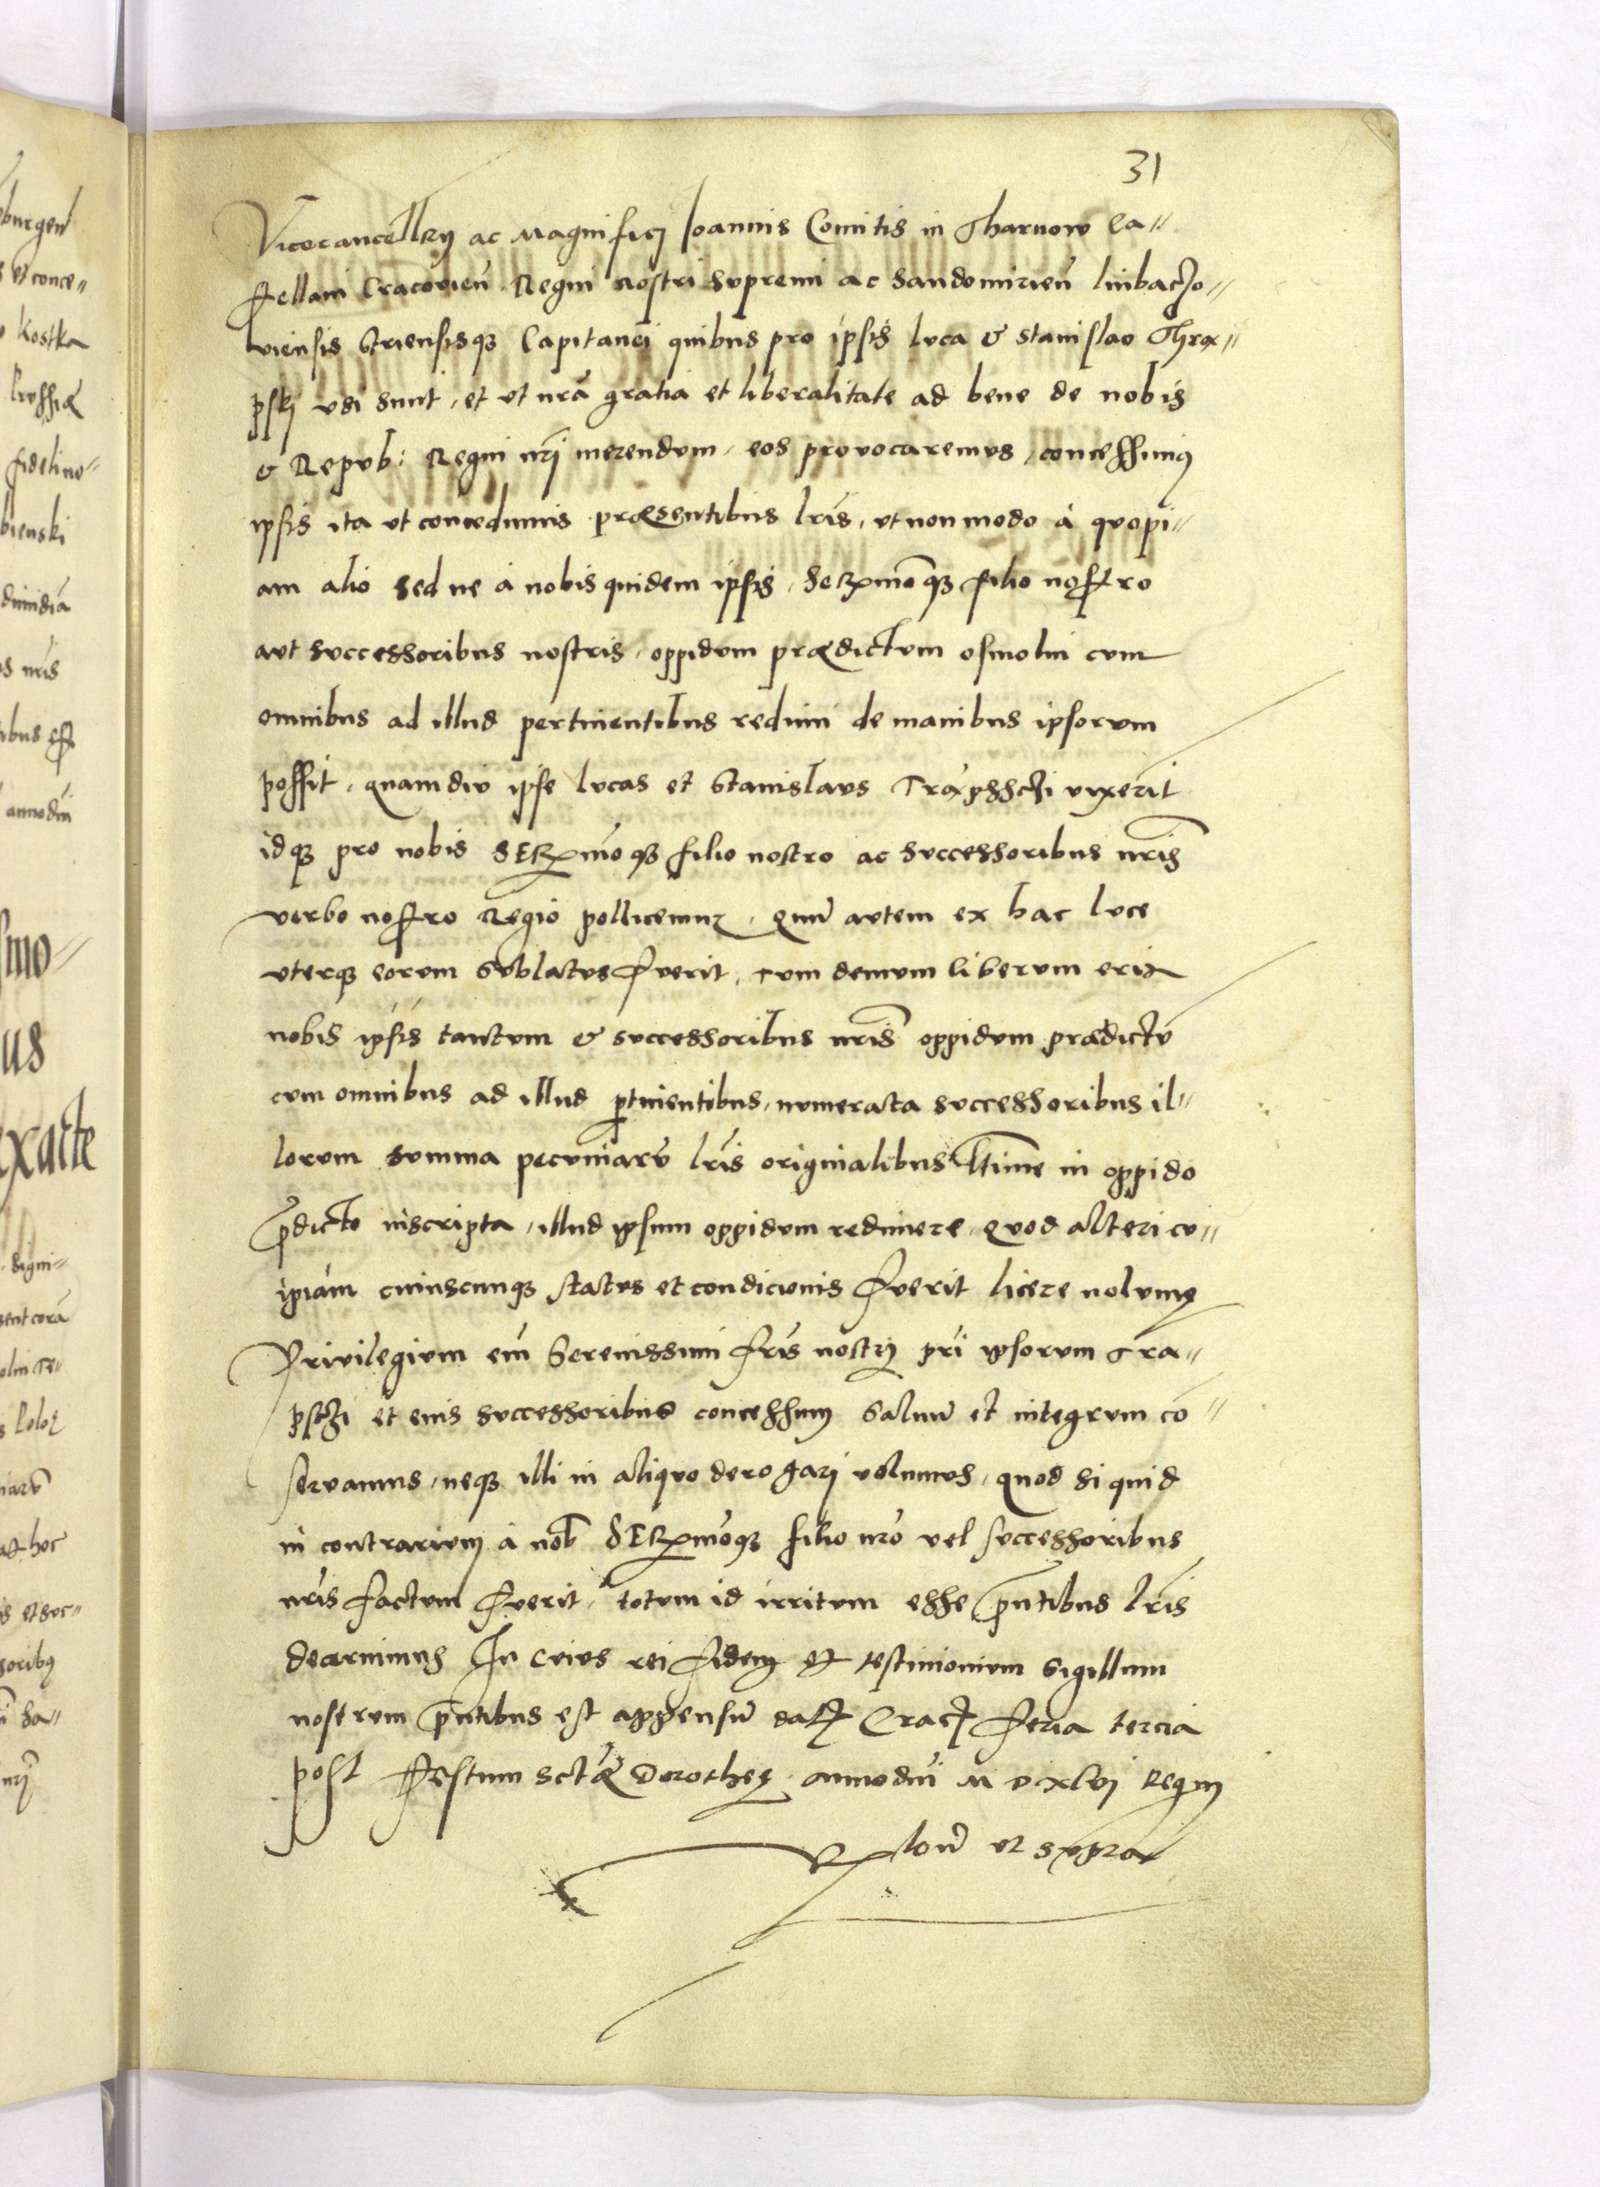 31
Vicecancellarij ac Magnifici Ioannis Comitis in Tharnow Ca-
stellani Cracovien̄ Regni nostri supremi ac Sandomirien̄ liubaczo-
viensis Striensisq3 Capitanei quibus pro ipsis luca & Stanislao Thra-
pski usi sunt, et ut nr̄a gratia et liberalitate ad bene de nobis
& Repub: Regni nr̄i merendum, eos provocaremus, concessimus
ipsis ita ut concedimus præsentibus lr̄is, ut non modo à quopi-
am alio sed ne à nobis quidem ipsis, Ser̄moq3 filio nostro
aut successoribus nostris, oppidum prædictum osmolin cum
omnibus ad illud pertinentibus redimi de manibus ipsorum
possit, quamdiu ipse lucas et Stanislaus vixerit
idq3 pro nobis SER̄moq3 filio nostro ac successoribus nr̄is
verbo nostro Regio pollicemur, Quū autem ex hac luce
uterq3 eorum sublatus fuerit, tum demum liberum erit
nobis ipsis tantum & successoribus nr̄is oppidum prædictū
cum omnibus ad illud p̄tinentibus, numerata successoribus il-
lorum summa pecuniarū lr̄is originalibus in oppido
p̄dicto inscripta, illud ipsum oppidum redimere, quod alteri cu-
ipiam cuiuscunq3 status et condicionis fuerit licere nolumus
Privilegium em̄ Serenissimi fr̄is nostri pr̄i ipsorum Tra-
psczi et eius successoribus concessum salvū et integrum cō-
servamus, neq3 illi in aliquo derogari volumus, quod si quid
in contrarium à nob̄ SER̄moq3 filio nr̄o vel successoribus
nr̄is factum fuerit, totum id irritum esse p̄ntibus lr̄is
decernimus In cuius rei fidem et testimonium Sigillum
nostrum p̄ntibus est appensū dat Crac feria tercia
post festum sctæ Dorotheę anno dn̄i M D xlvj Regni
ut supra